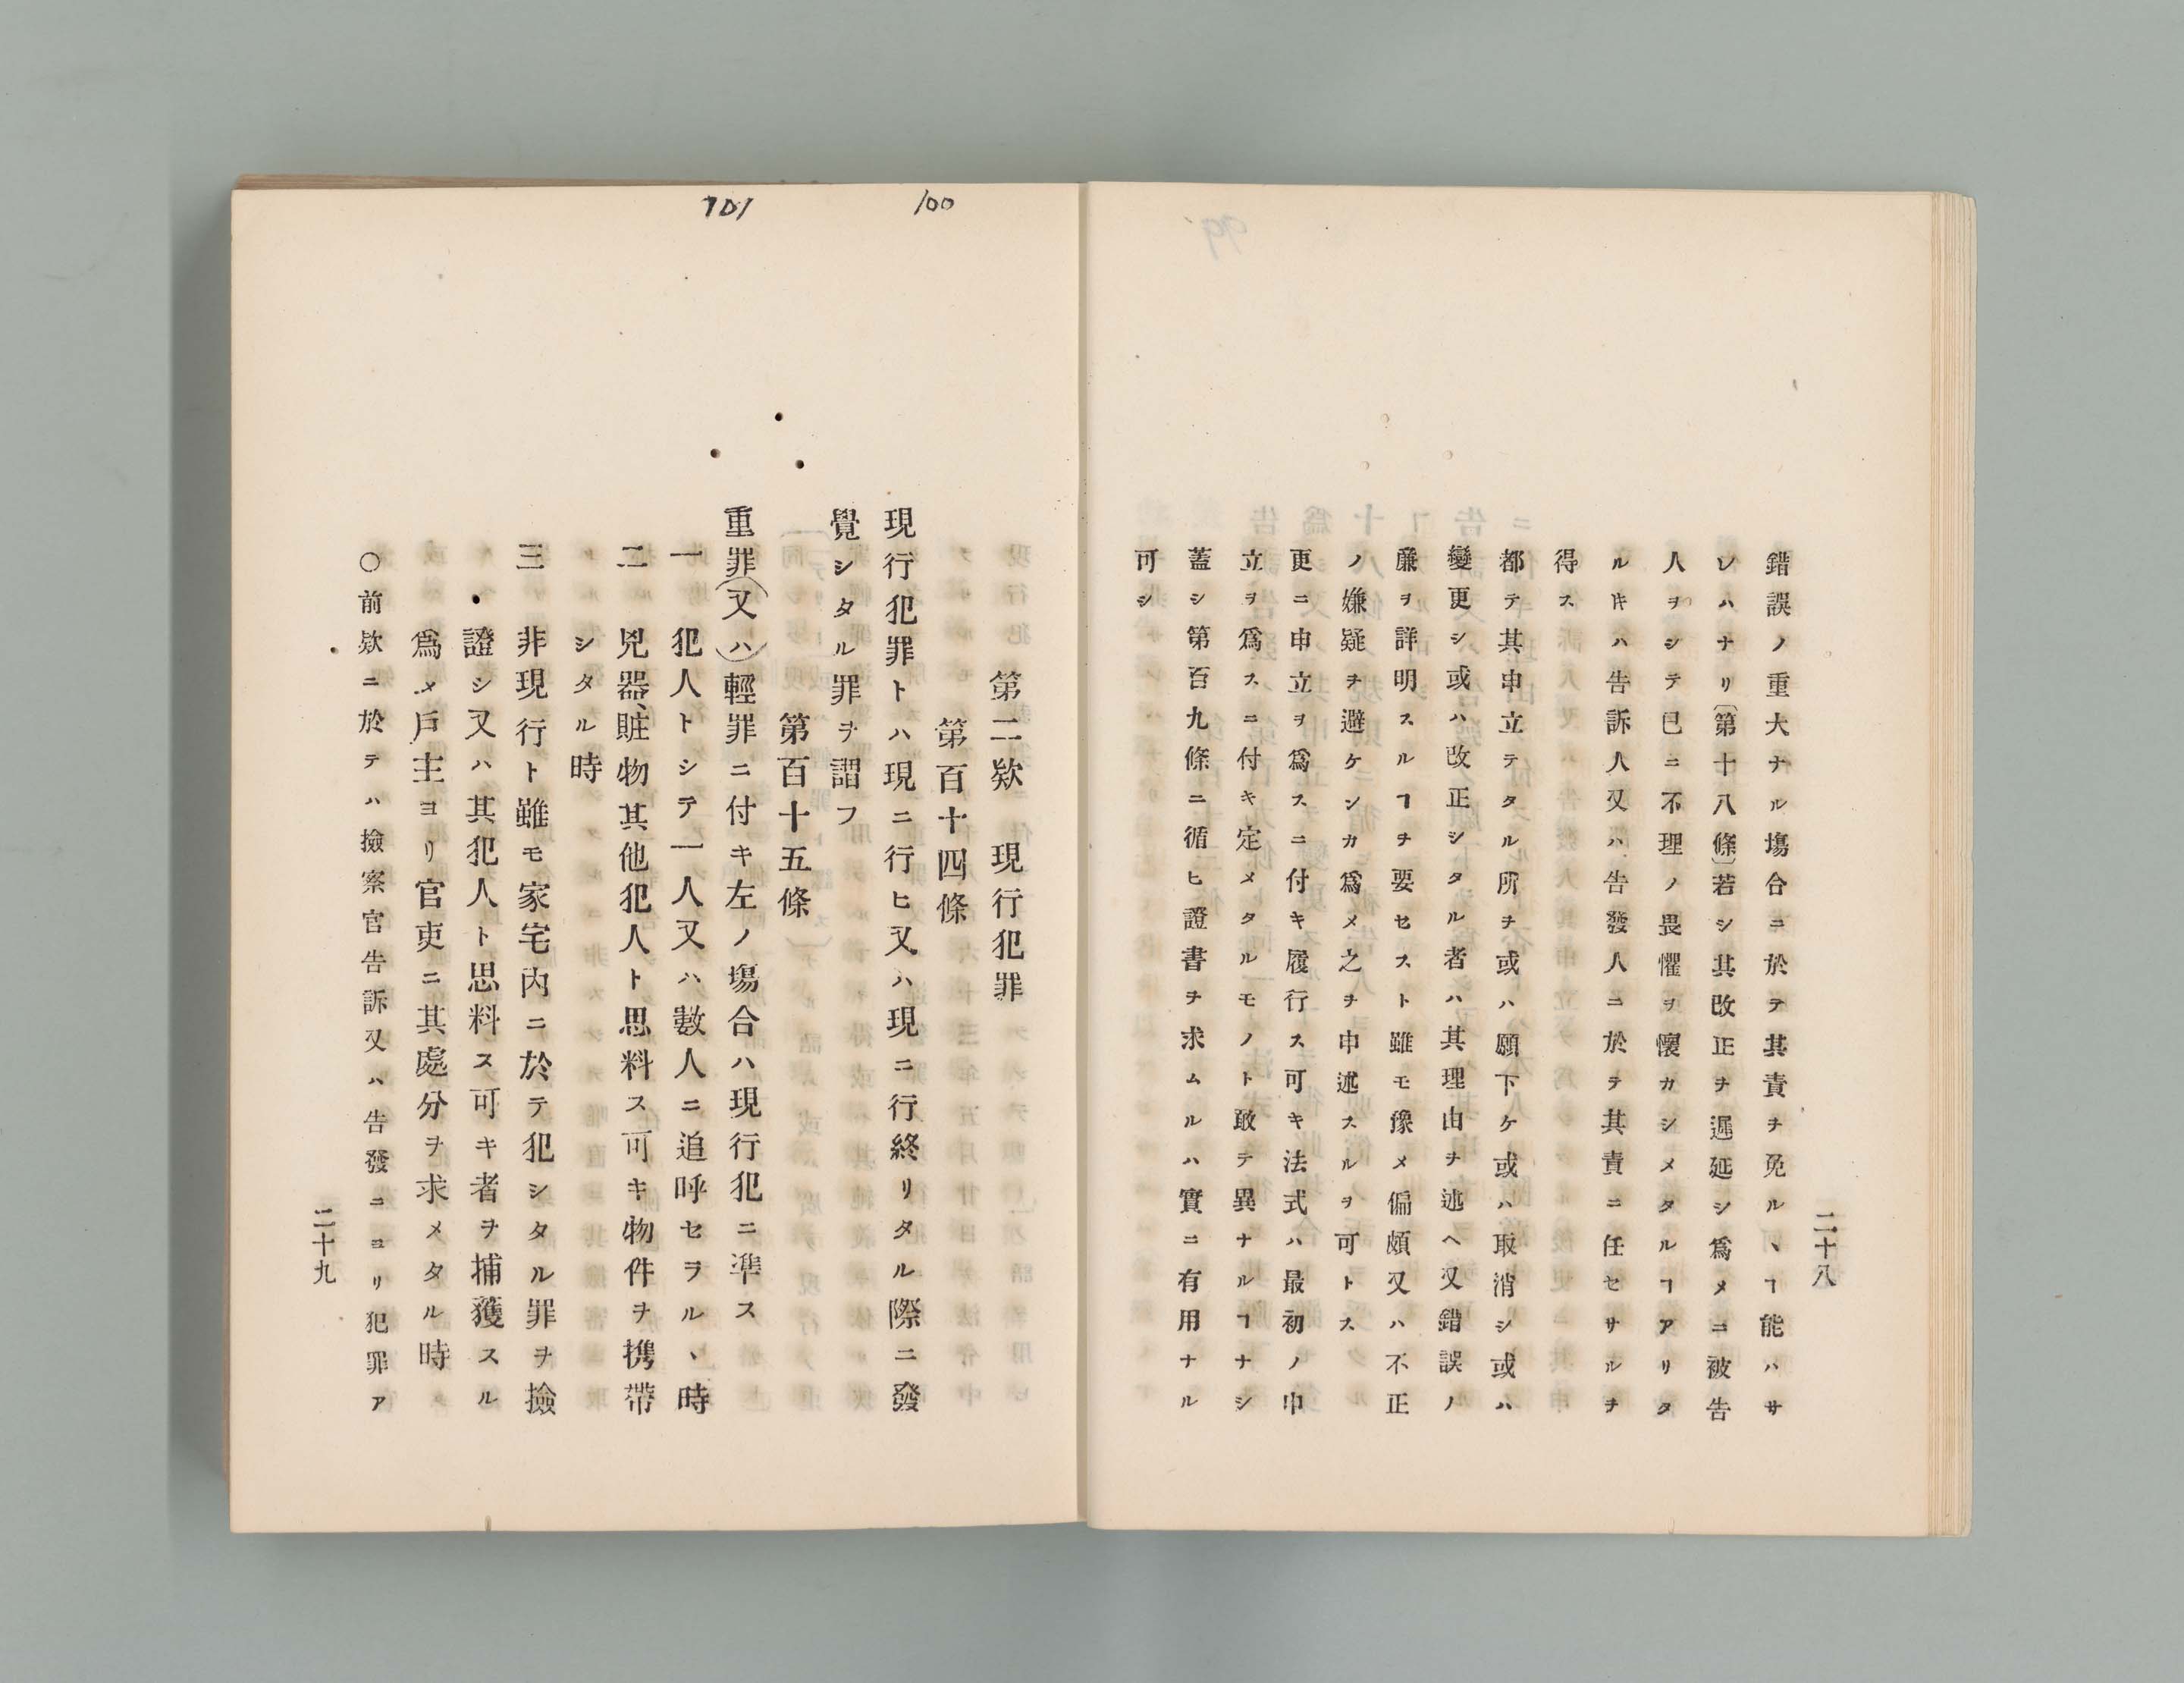 二十八
錯誤ノ重大ナル塲合ニ於テ其責ヲ免ルヽヿ能ハサ
レハナリ〔第十八條〕若シ其改正ヲ遲延シ爲メニ被告
人ヲシテ已ニ不理ノ畏懼ヲ懷カシメタルヿアリタ
ルキハ告訴人又ハ告發人ニ於テ其責ニ任セサルヲ
得ス
都テ其申立テタル所ヲ或ハ願下ケ或ハ取消シ或ハ
變更シ或ハ改正シタル者ハ其理由ヲ述ヘ又錯誤ノ
廉ヲ詳明スルヿヲ要セスト雖モ豫メ偏頗又ハ不正
ノ嫌疑ヲ避ケンカ爲メ之ヲ申述スルヲ可トス
更ニ申立ヲ爲スニ付キ履行ス可キ法式ハ最初ノ申
立ヲ爲スニ付キ定メタルモノト敢テ異ナルヿナシ
蓋シ第百九條ニ循ヒ證書ヲ求ムルハ實ニ有用ナル
可シ
100
101
第二欵 現行犯罪
第百十四條
現行犯罪トハ現ニ行ヒ又ハ現ニ行終リタル際ニ發
覺シタル罪ヲ謂フ
第百十五條
重罪(又ハ)輕罪ニ付キ左ノ塲合ハ現行犯ニ準ス
一 犯人トシテ一人又ハ數人ニ追呼セラルヽ時
二 兇器、賍物其他犯人ト思料ス可キ物件ヲ携帶
シタル時
三 非現行ト雖モ家宅內ニ於テ犯シタル罪ヲ撿
證シ又ハ其犯人ト思料ス可キ者ヲ捕獲スル
爲メ戶主ヨリ官吏ニ其處分ヲ求メタル時
○前欵ニ於テハ撿察官告訴又ハ告發ニヨリ犯罪ア
二十九